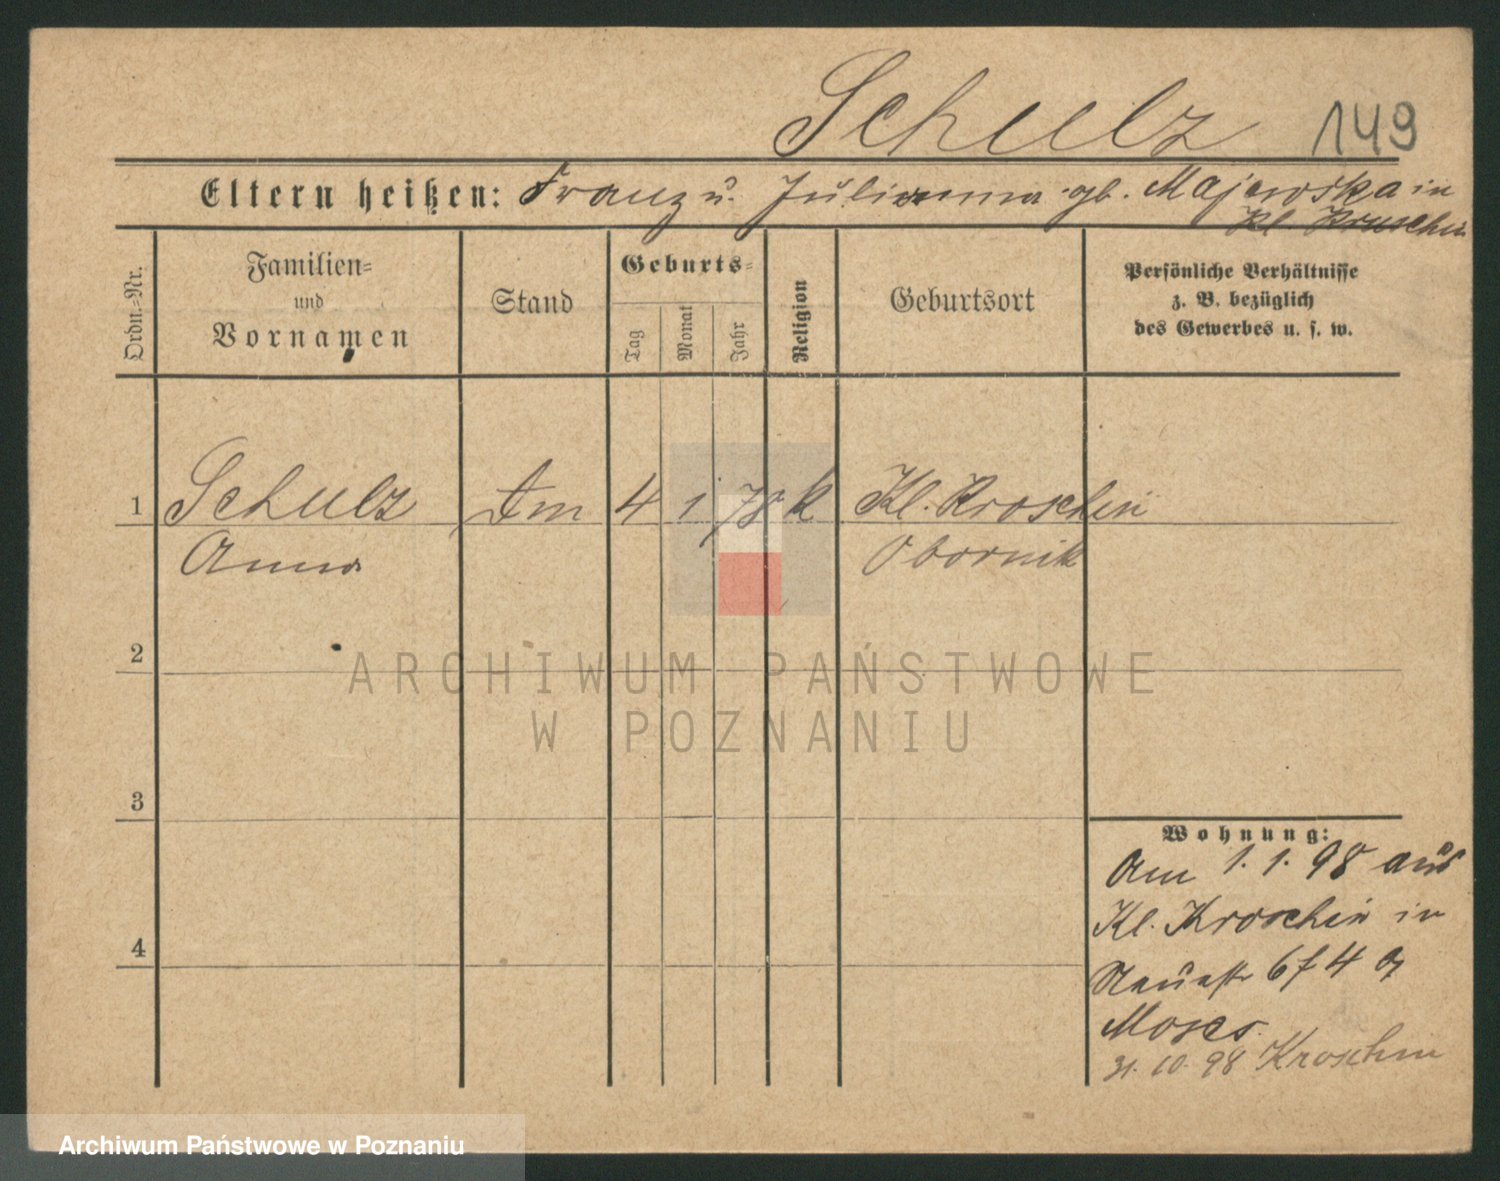 Schulz 149
Eltern heißen: Franz u. Julianna gb. Majewska in
Kl. Kruschin
Ordn.-Nr.
Familien-
und
Vornamen
Stand
Geburts-
Tag
Monat
Jahr
Religion
Geburtsort
Persönliche Verhältnisse
z. B. bezüglich
des Gewerbes u. s. w.
1 Schulz 4 1 78 k Kl. Kroschin
Anna Obornik
2
3
4
Wohnung:
Am 1.1.98 aus
Kl. Kroschin in
Moses
31.10.98 Kroschin
ARCHIWUM PAŃSTWOWE
W POZNANIU
Archiwum Państwowe w Poznaniu